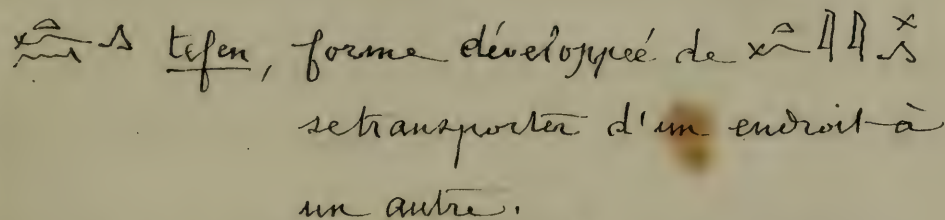 𓏏𓆑𓈖𓂻 tefen, forme développeé de 𓏏𓆑𓇋𓇋𓏴𓂻
setransporter d'un endroit à
un autre.